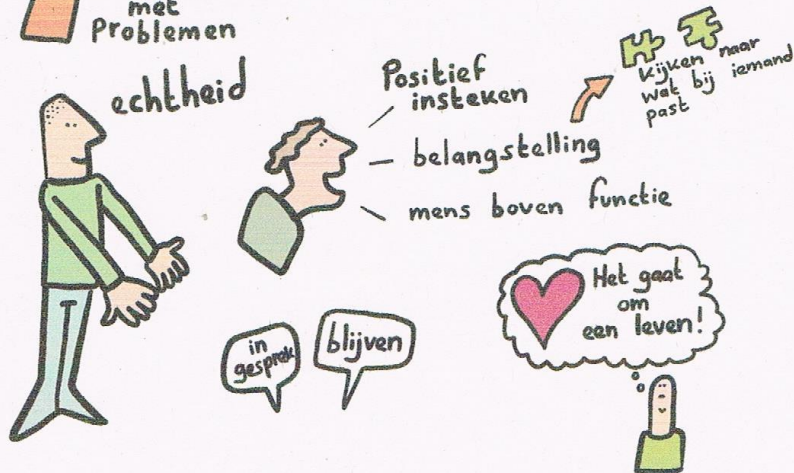 met
Problemen
echtheid
Positief
insteken
belangstelling
mens boven functie
kijken naar
wat bij iemand
past
in
gesprek
blijven
Het gaat
om
een leven!